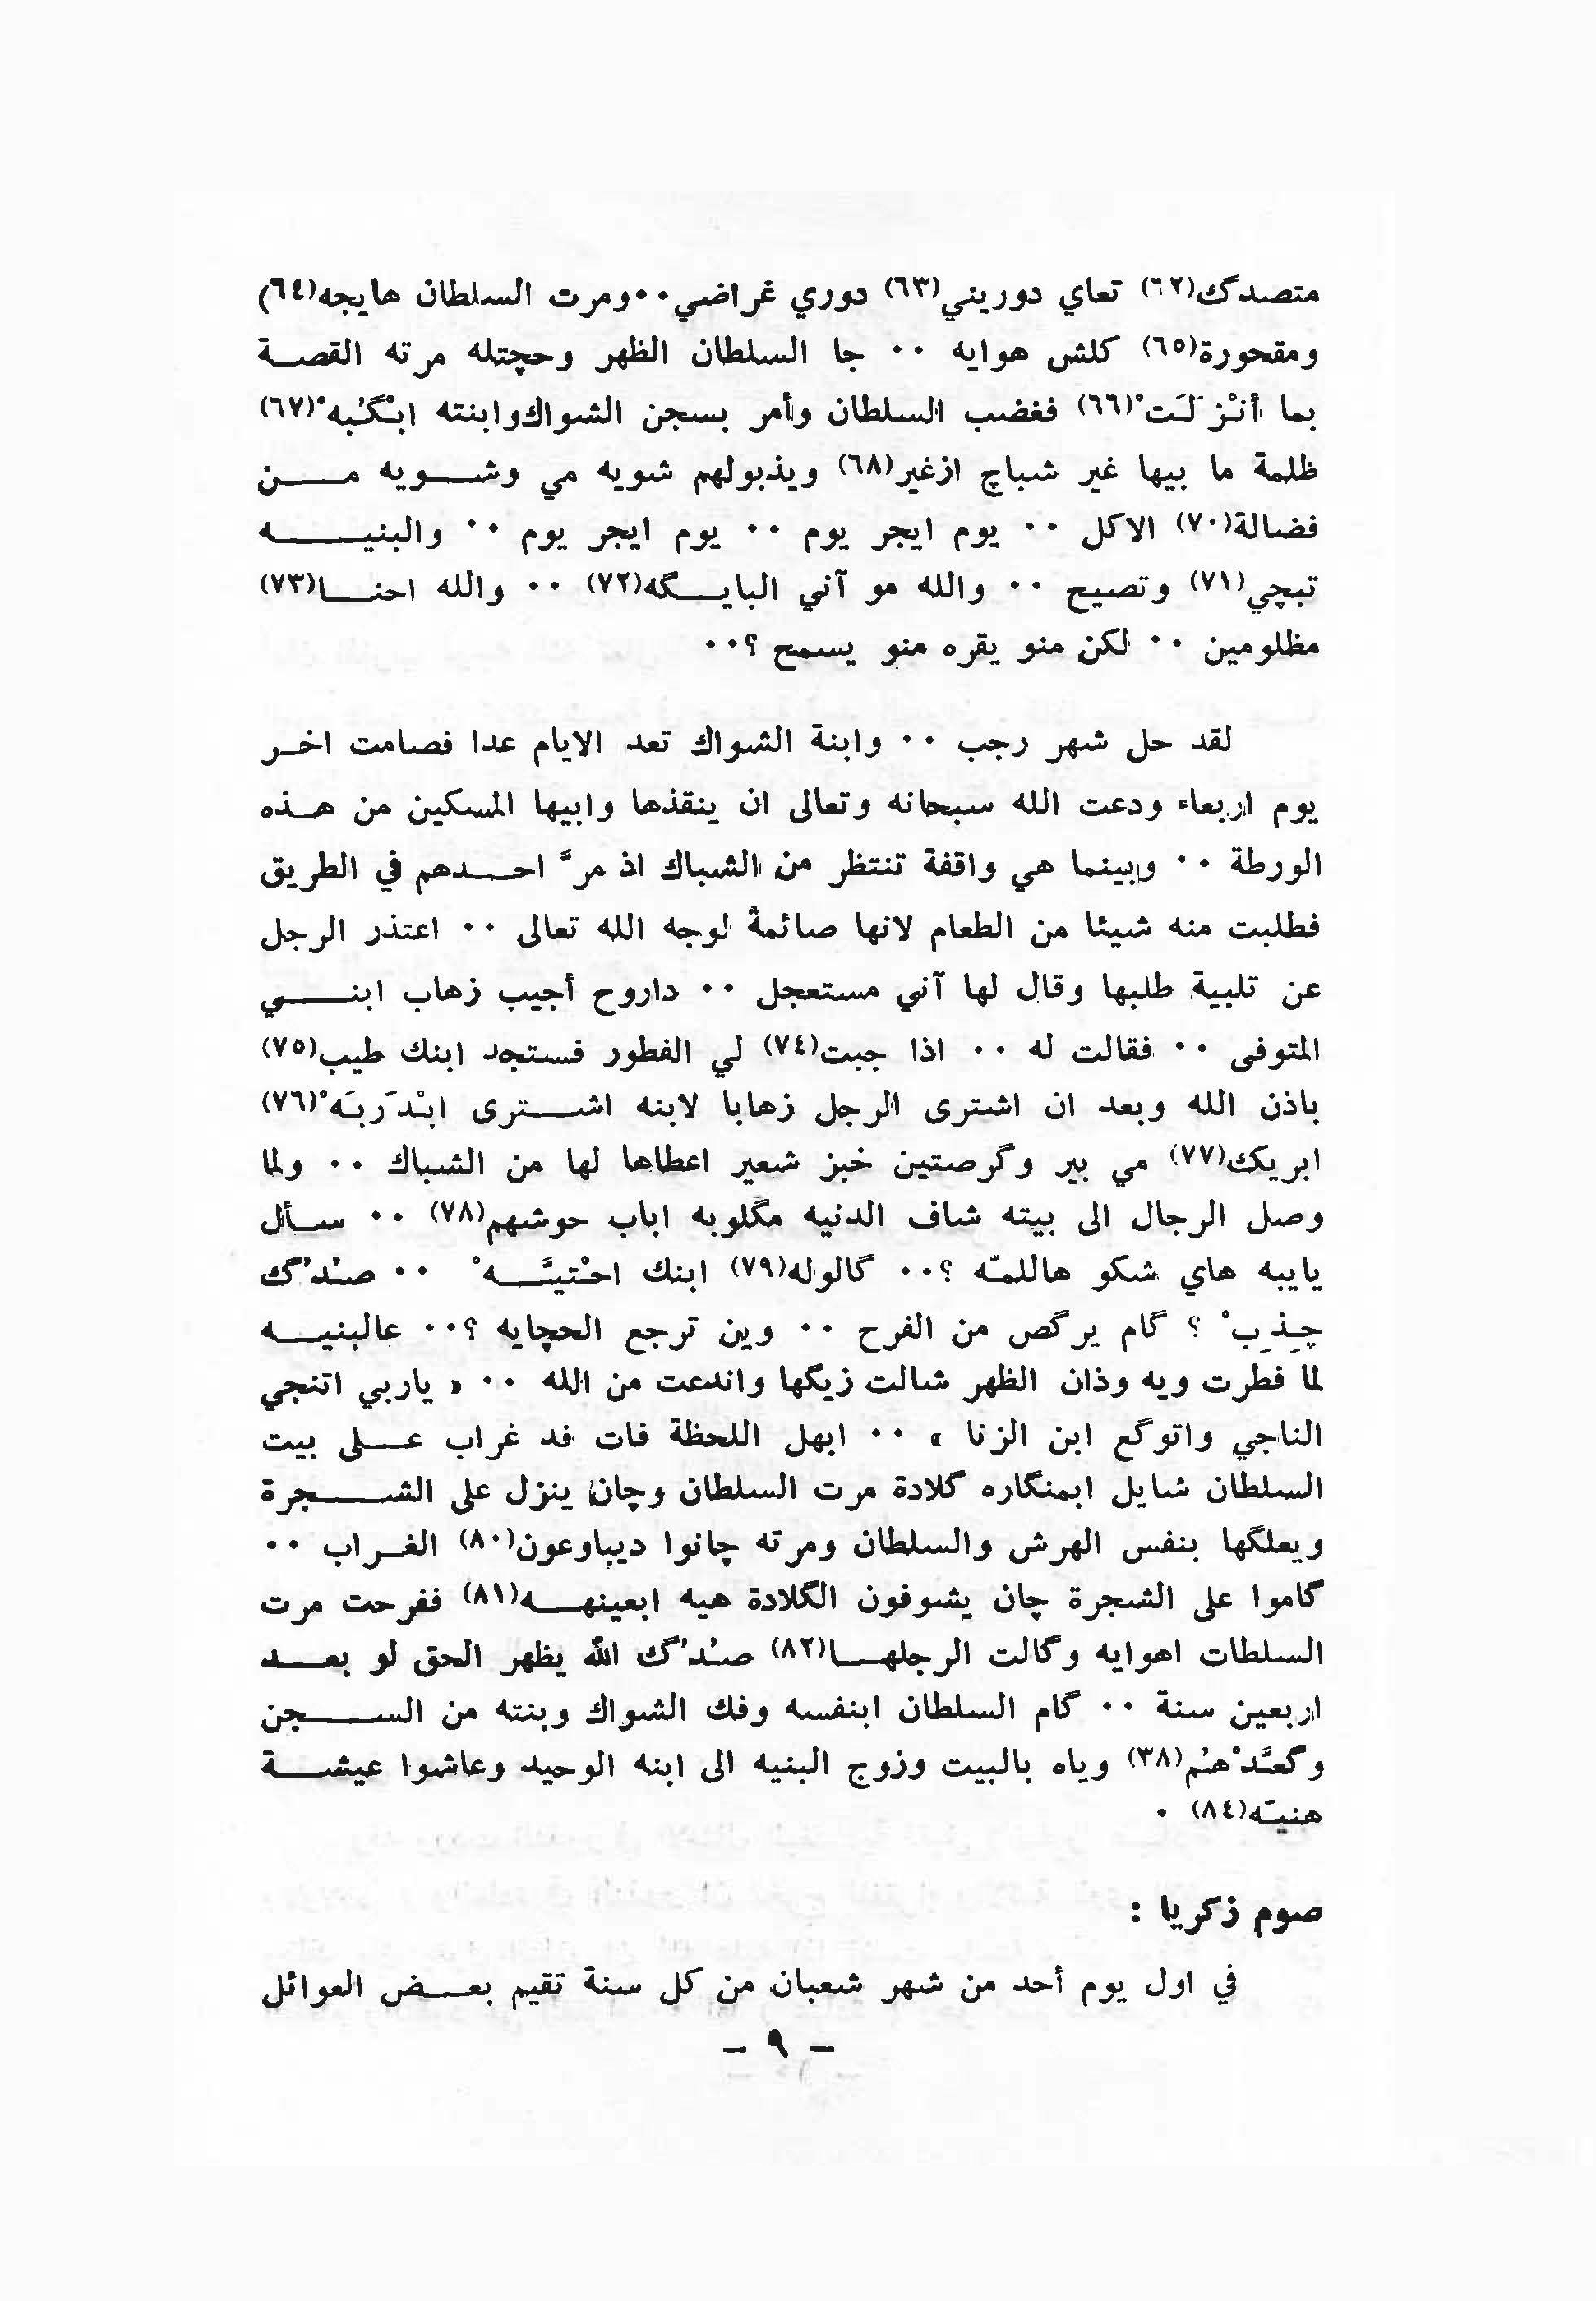 متصدگ(٦٢) تعاي دوريني(٦٣) دوري غراضي٠٠ومرت السلطان هايجه(٦٤)
ومقحورة(٦٥) كلش هوايه ٠٠ جا السلطان الظهر وحچتله مرته القصة
بما أنْزَلَتْ(٦٦) فغضب السلطان وأمر بسجن الشواك وابنته ابْگُبهْ(٦٧)
ظلمة ما بيها غير شباچ ازغير(٦٨) ويذبولهم شويه مي وشويه من
فضالة(٧٠) الاكل ٠٠ يوم ايجر يوم ٠٠ يوم ايجر يوم ٠٠ والبنيه
تبچي(٧١) وتصيح ٠٠ والله مو آني البايگه(٧٢) ٠٠ والله احنا(٧٣)
مظلومين ٠٠ لكن منو يقره منو يسمح ؟٠٠
لقد حل شهر رجب ٠٠ وابنة الشواك تعد الايام عدا فصامت اخر
يوم اربعاء ودعت الله سبحانه وتعالى ان ينقذها وابيها المسكين من هذه
الورطة ٠٠ وبينما هي واقفة تنتظر من الشباك اذ مرَّ احدهم في الطريق
فطلبت منه شيئا من الطعام لانها صائمة لوجه الله تعالى ٠٠ اعتذر الرجل
عن تلبية طلبها وقال لها آني مستعجل ٠٠ داروح أجيب زهاب ابني
المتوفى ٠٠ فقالت له ٠٠ اذا جبت(٧٤) لي الفطور فستجد ابنك طيب(٧٥)
باذن الله وبعد ان اشترى الرجل زهابا لابنه اشترى ابْدَربَهْ(٧٦)
ابريك(٧٧) مي بير وگرصتين خبز شعير اعطاها لها من الشباك ٠٠ ولما
وصل الرجال الى بيته شاف الدنيه مگلوبه اباب حوشهم(٧٨) ٠٠ سأل
يايبه هاي شكو هاللمّه ؟٠٠ گالوله(٧٩) ابنك احْتيَّهْ ٠٠ صِدْگ
چِذِبْ ؟ گام يرگص من الفرح ٠٠ وين ترجع الحچايه ؟٠٠ عالبنيه
لما فطرت ويه وذان الظهر شالت زيگها واندعت من الله ٠٠ « ياربي اتنجي
الناجي واتوگع ابن الزنا » ٠٠ ابهل اللحظة فات فد غراب على بيت
السلطان شايل ابمنگاره گلادة مرت السلطان وچان ينزل على الشجرة
ويعلگها بنفس الهرش والسلطان ومرته چانوا ديباوعون(٨٠) الغراب ٠٠
گاموا على الشجرة چان يشوفون الگلادة هيه ابعينهه(٨١) ففرحت مرت
السلطات اهوايه وگالت الرجلها(٨٢) صدْگ الله يظهر الحق لو بعد
اربعين سنة ٠٠ گام السلطان ابنفسه وفك الشواك وبنته من السجن
وگعَّدْهُم(٣٨) وياه بالبيت وزوج البنيه الى ابنه الوحيد وعاشوا عيشة
هنيّه(٨٤) ٠
صوم زكريا :
في اول يوم أحد من شهر شعبان من كل سنة تقيم بعض العوائل
– ٩ –